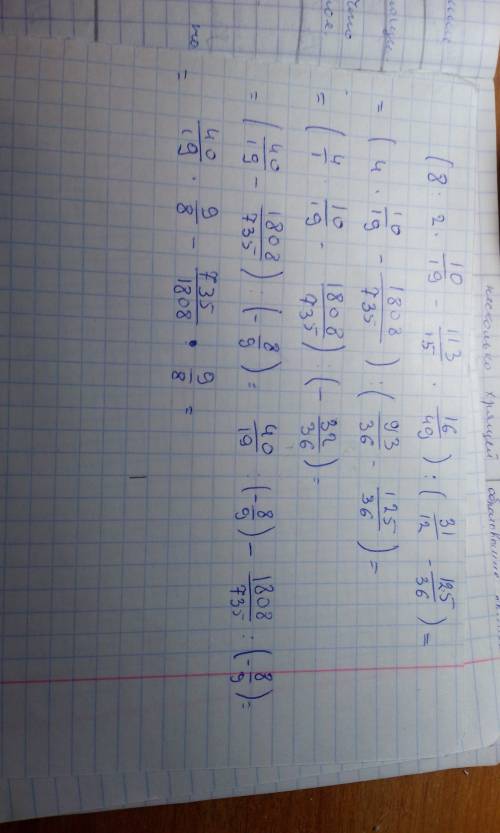 несколько хрящей
(8 : 2 · 10/19 - 113/15 · 16/49) : (31/12 - 125/36) =
= (4 · 10/19 - 1808/735) : (93/36 - 125/36) =
= (4/1 · 10/19 - 1808/735) : (- 32/36) =
= (40/19 - 1808/735) : (- 8/9) = 40/19 : (- 8/9) - 1808/735 : (- 8/9) =
= 40/19 · 9/8 - 735/1808 · 9/8 =